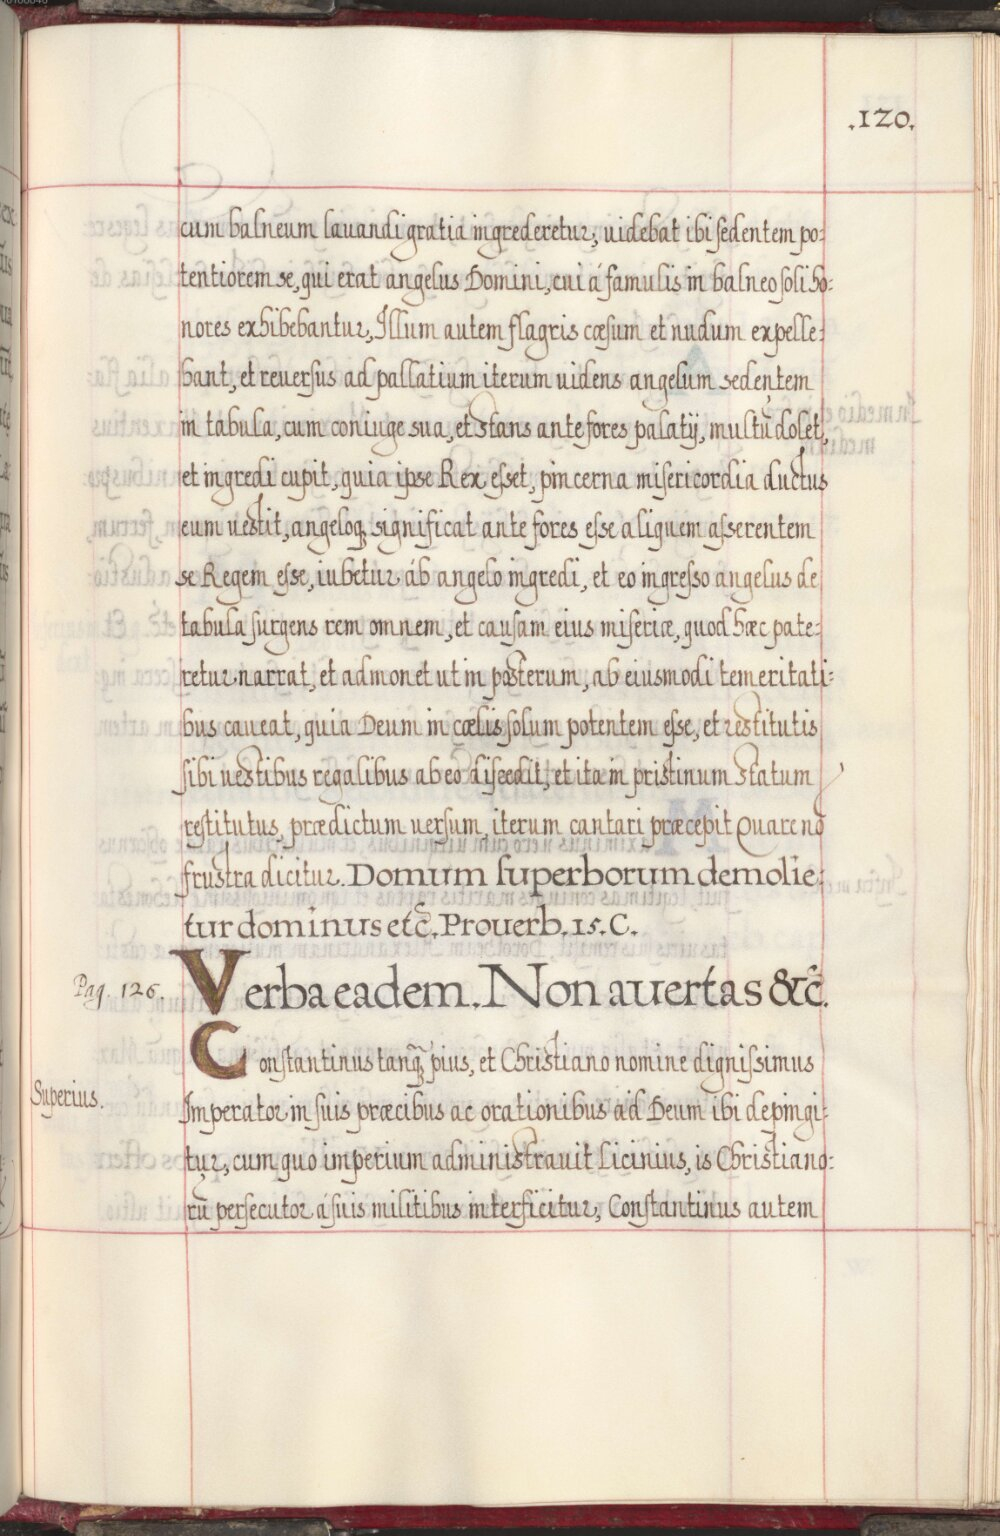 .120.
cum balneum lauandi gratia ingrederetur, uidebat ibi sedentem po:
tentiorem se, qui erat angelus Domini, cui á famulis in balneo soli ho:
nores exhibebantur, Illum autem flagris cæsum et nudum expelle:
bant, et reuersus ad pallatium iterum uidens angelum sedentem
in tabula, cum coniuge sua, et stans ante fores palatij, multũ dolet,
et ingredi cupit, quia ipse Rex esset, pincerna misericordia ductus
eum uestit, angeloq; significat ante fores esse aliquem asserentem
se Regem esse, iubetur áb angelo ingredi, et eo ingresso angelus de
tabula surgens rem omnem, et causam eius miseriæ, quod hæc pate:
retur narrat, et admonet ut in posterum, ab eiusmodi temeritati:
bus caueat, quia Deum in cælis solum potentem esse, et restitutis
sibi uestibus regalibus ab eo discedit, et ita in pristinum statum
restitutus, prædictum uersum, iterum cantari præcepit Quare nõ
frustra dicitur. Domum superborum demolie:
tur dominus etc̃. Prouerb. 15. C.
Pag. 126.
Verba eadem. Non auertas &c̃.
Constantinus tanq̃; pius, et Christiano nomine dignissimus
Superius.
Imperator in suis præcibus ac orationibus ad Deum ibi depingi:
tur, cum quo imperium administrauit Licinius, is Christiano:
rũ persecutor á suis militibus interficitur, Constantinus autem